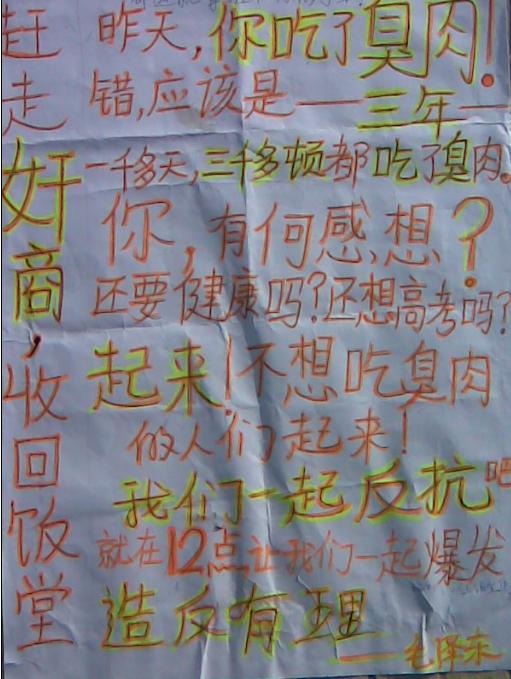 赶走奸商,收回饭堂
昨天,你吃了臭肉!
错,应该是——三年——
一千多天,三千多顿都吃了臭肉。
你,有何感想?
还要健康吗?还想高考吗?
起来!不想吃臭肉
的人们起来!
我们一起反抗吧
就在12点让我们一起爆发
造反有理
——毛泽东